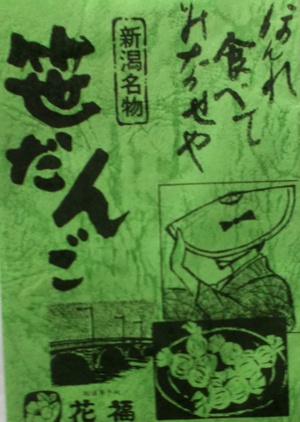 ほんれ
食べて
みなせや
新潟名物
笹だんご
花福